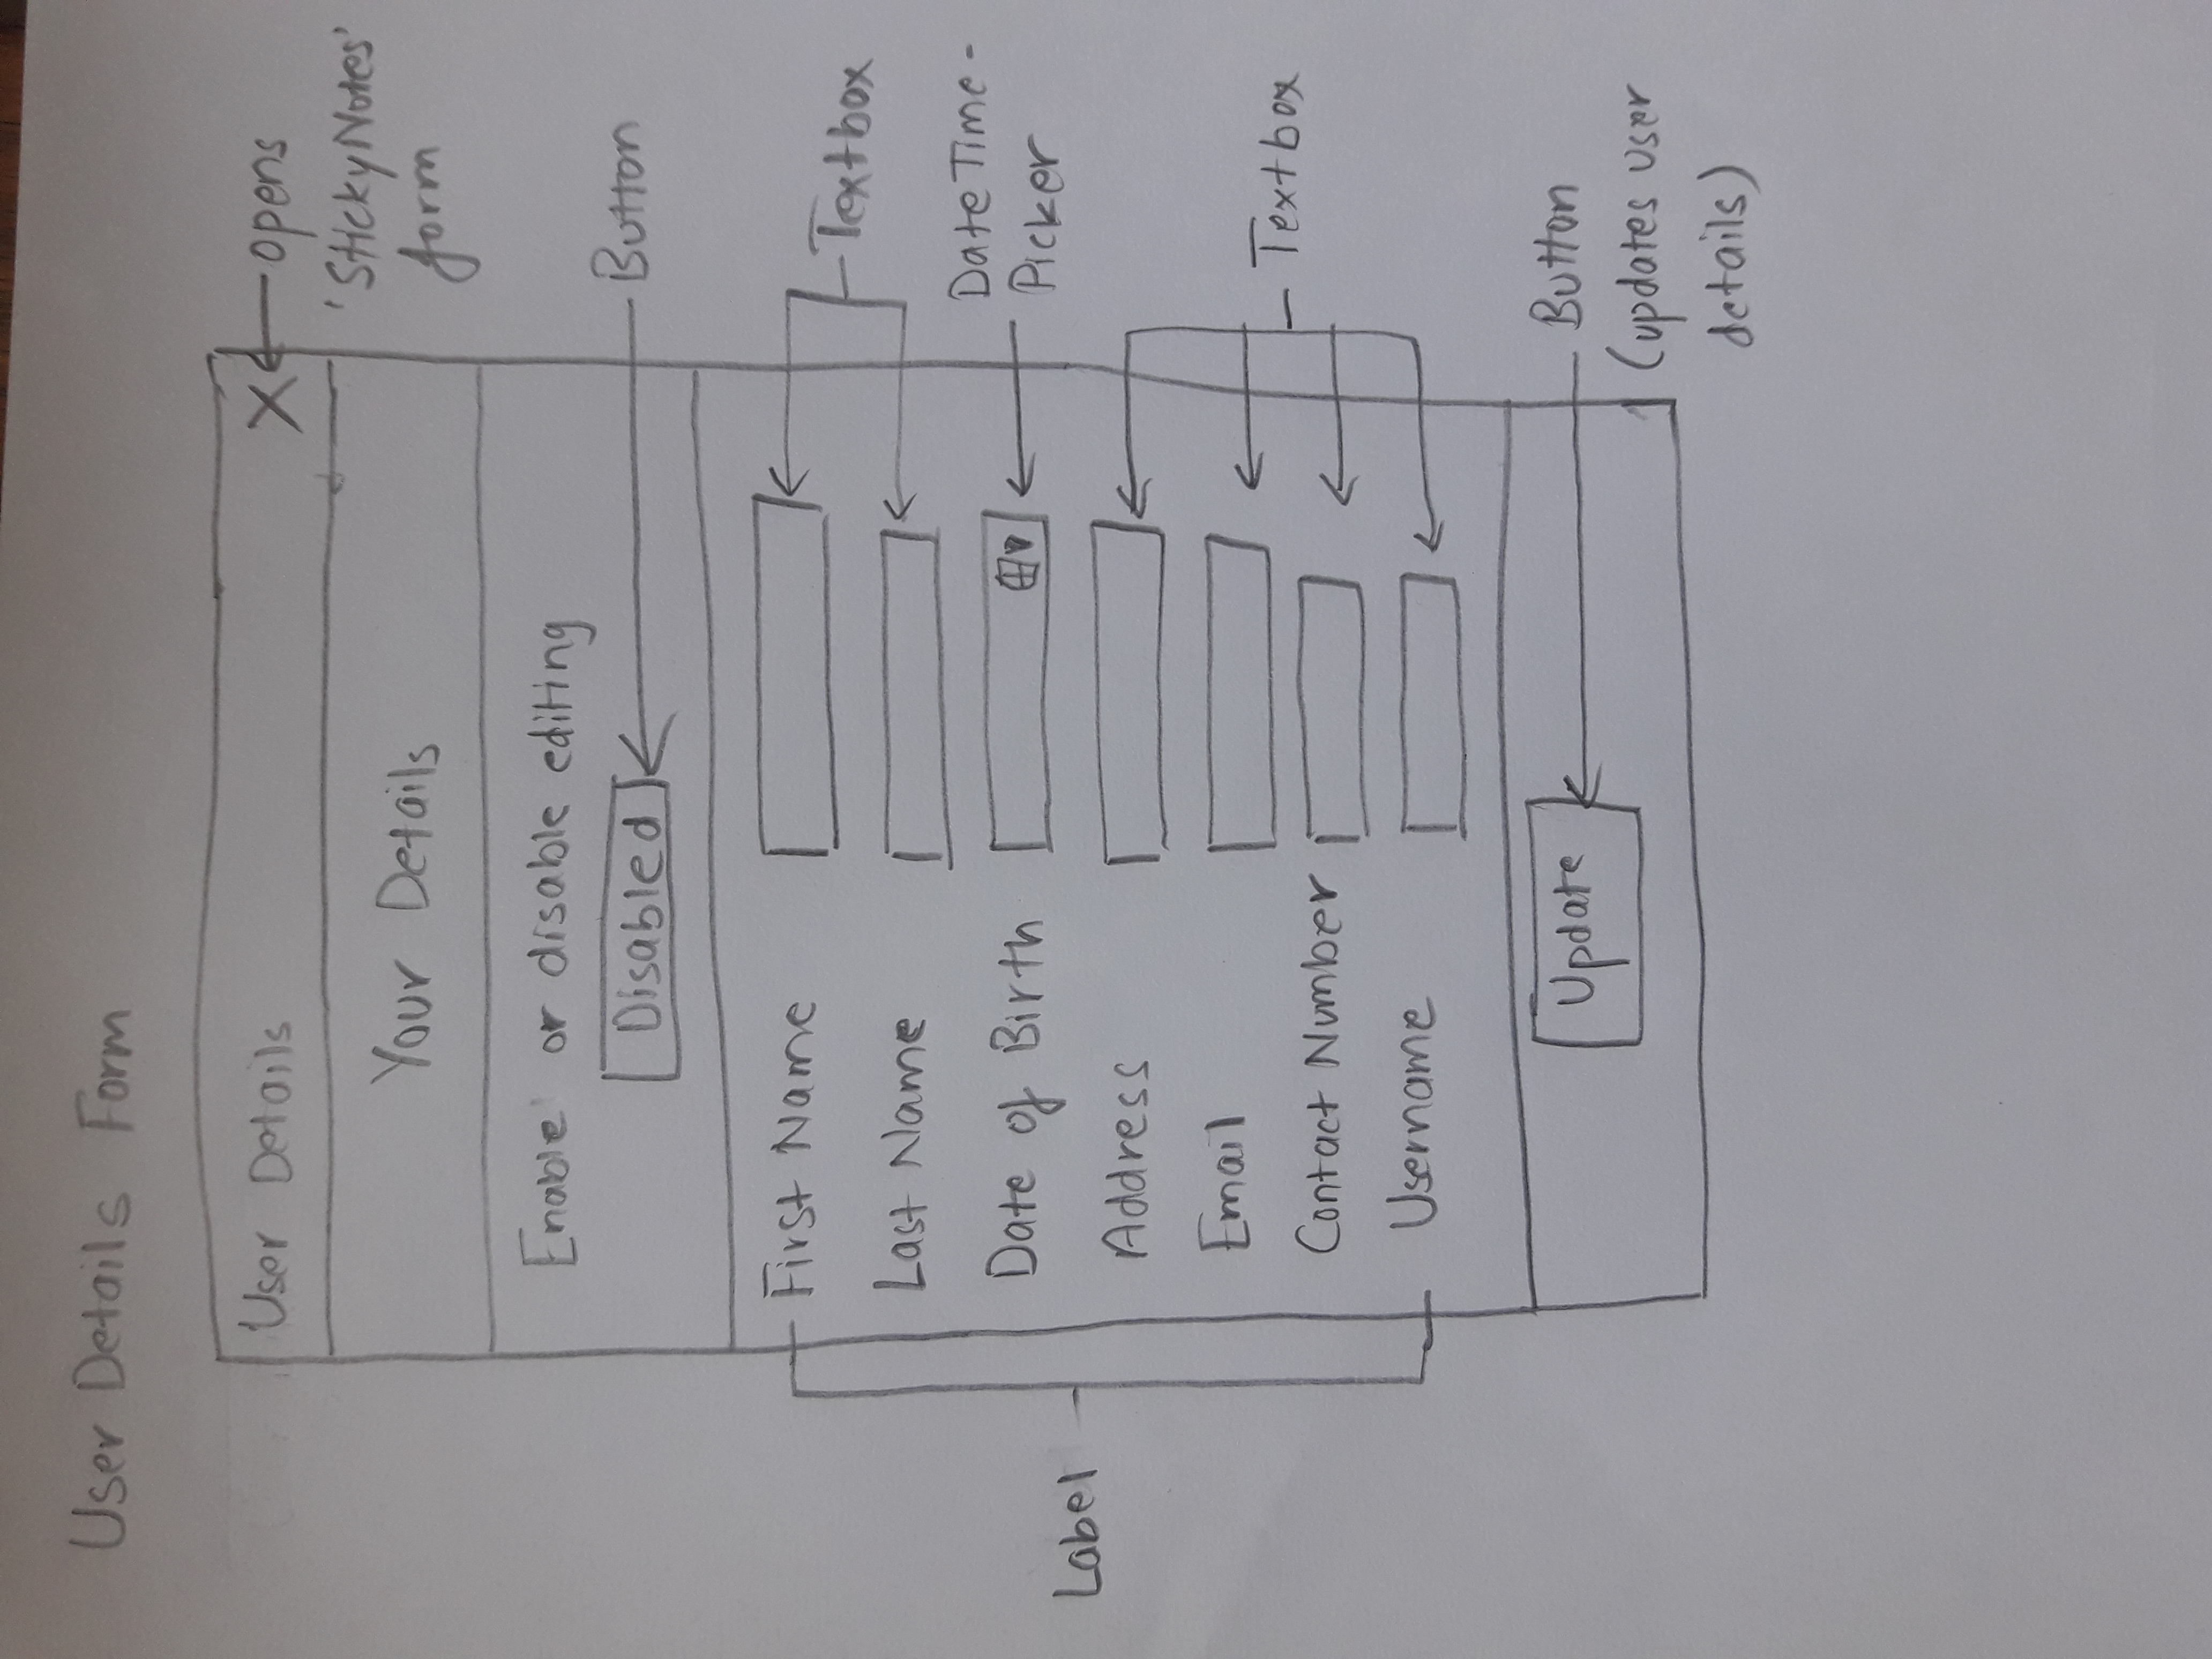 User Details Form
User Details X
opens
'StickyNotes'
form
Your Details
Enable or disable editing
Disabled
Button
First Name
Last Name
Textbox
Date of Birth
DateTime-
Picker
Label
Address
Email
Contact Number
Username
Textbox
Update
Button
(updates user
details)